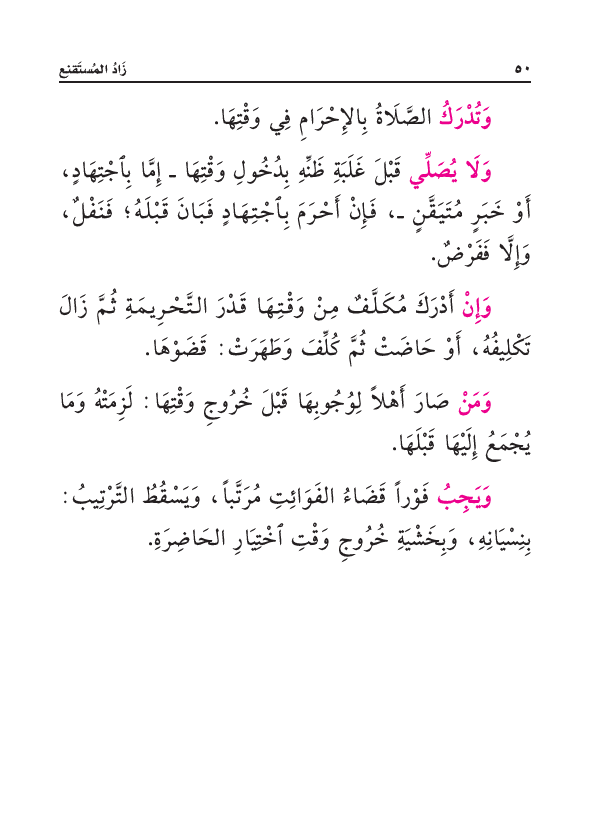 ٥٠
زَادُ المُستَقنِع
وَتُدْرَكُ الصَّلَاةُ بِالإِحْرَامِ فِي وَقْتِهَا.
وَلَا يُصَلِّي قَبْلَ غَلَبَةِ ظَنِّهِ بِدُخُولِ وَقْتِهَا ـ إِمَّا بِٱجْتِهَادٍ،
أَوْ خَبَرٍ مُتَيَقَّنٍ ـ، فَإِنْ أَحْرَمَ بِٱجْتِهَادٍ فَبَانَ قَبْلَهُ؛ فَنَفْلٌ،
وَإِلَّا فَفَرْضٌ.
وَإِنْ أَدْرَكَ مُكَلَّفٌ مِنْ وَقْتِهَا قَدْرَ التَّحْرِيمَةِ ثُمَّ زَالَ
تَكْلِيفُهُ، أَوْ حَاضَتْ ثُمَّ كُلِّفَ وَطَهَرَتْ: قَضَوْهَا.
وَمَنْ صَارَ أَهْلاً لِوُجُوبِهَا قَبْلَ خُرُوجِ وَقْتِهَا: لَزِمَتْهُ وَمَا
يُجْمَعُ إِلَيْهَا قَبْلَهَا.
وَيَجِبُ فَوْراً قَضَاءُ الفَوَائِتِ مُرَتَّباً، وَيَسْقُطُ التَّرْتِيبُ:
بِنِسْيَانِهِ، وَبِخَشْيَةِ خُرُوجِ وَقْتِ ٱخْتِيَارِ الحَاضِرَةِ.